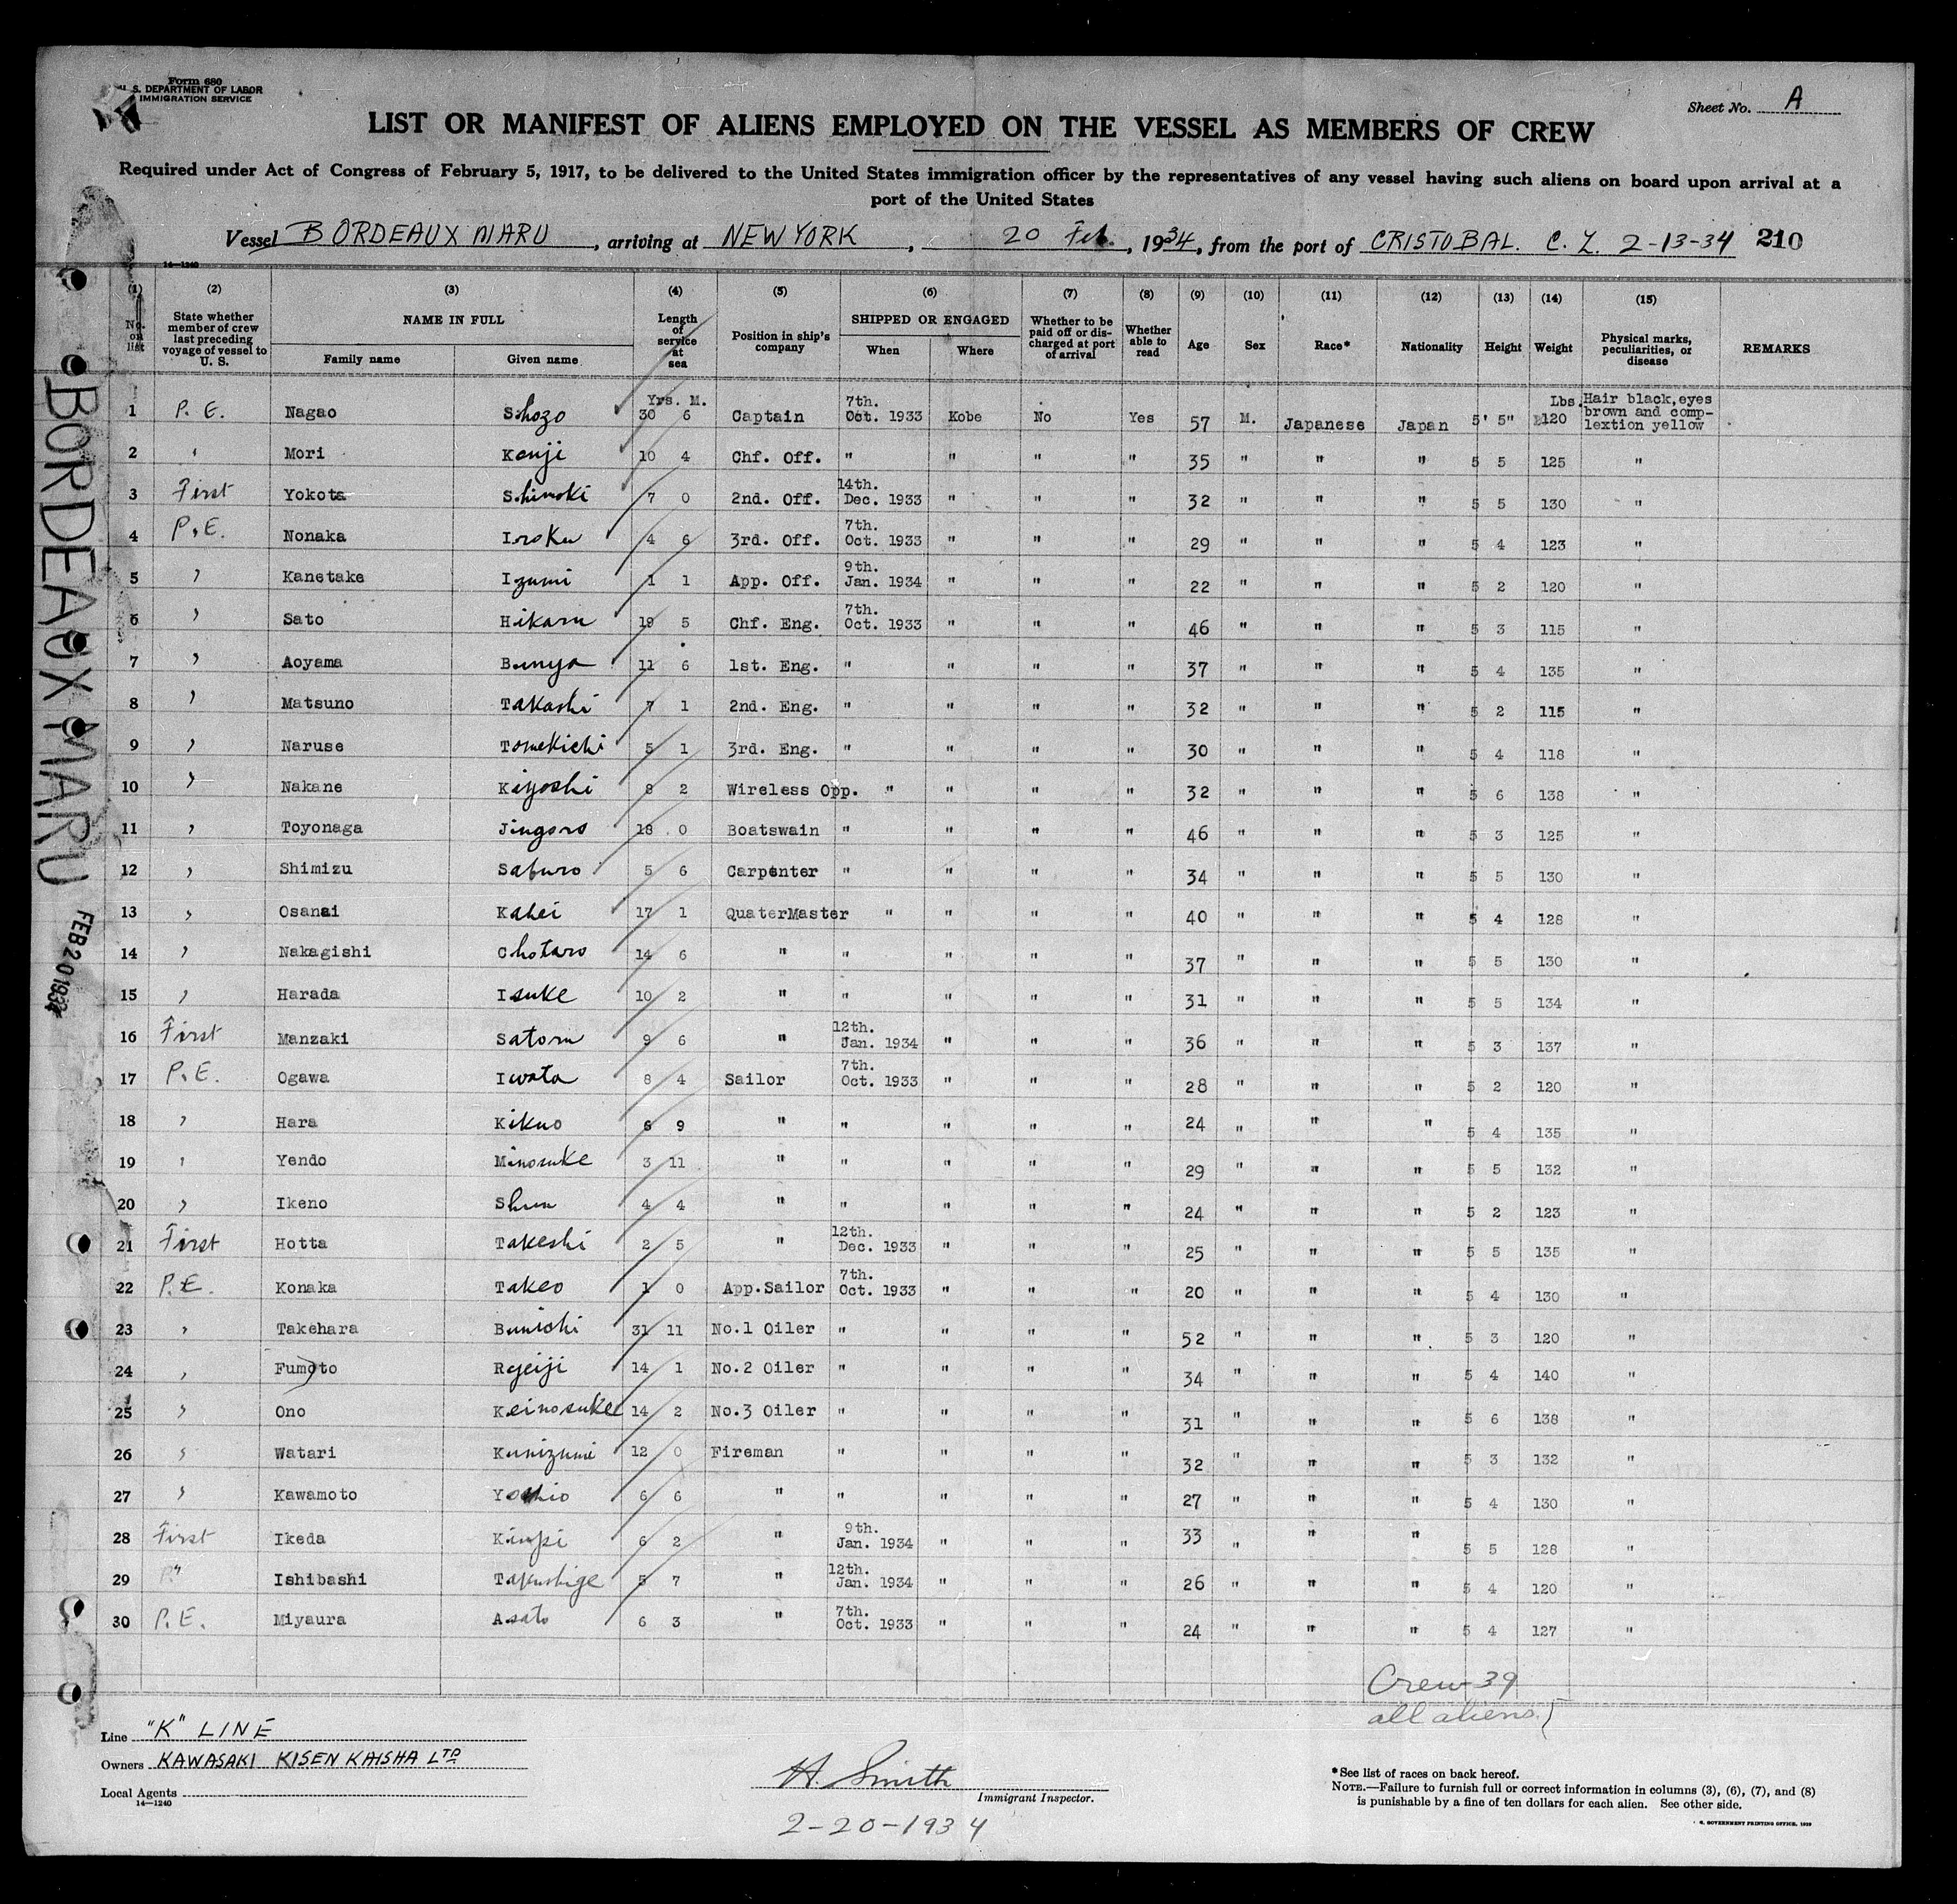 Form 680
U. S. DEPARTMENT OF LABOR
IMMIGRATION SERVICE
Sheet No. A
LIST OR MANIFEST OF ALIENS EMPLOYED ON THE VESSEL AS MEMBERS OF CREW
Required under Act of Congress of February 5, 1917, to be delivered to the United States immigration officer by the representatives of any vessel having such aliens on board upon arrival at a
port of the United States
Vessel BORDEAUX MARU, arriving at NEW YORK, 20 Feb., 1934, from the port of CRISTOBAL. C. Z. 2-13-34 210
14—1240
(1) (2) (3) (4) (5) (6) (7) (8) (9) (10) (11) (12) (13) (14) (15)
No. on list State whether member of crew last preceding voyage of vessel to U. S. NAME IN FULL Family name Given name Length of service at sea Position in ship's company SHIPPED OR ENGAGED When Where Whether to be paid off or discharged at port of arrival Whether able to read Age Sex Race* Nationality Height Weight Physical marks, peculiarities, or disease REMARKS
Yrs. M. Lbs.
1 P. E. Nagao Shozo 30 6 Captain 7th. Oct. 1933 Kobe No Yes 57 M. Japanese Japan 5' 5" 120 Hair black,eyes brown and complextion yellow
2 " Mori Kenji 10 4 Chf. Off. " " " " 35 " " " 5 5 125 "
3 First Yokota Shinoki 7 0 2nd. Off. 14th. Dec. 1933 " " " 32 " " " 5 5 130 "
4 P.E. Nonaka Iroku 4 6 3rd. Off. 7th. Oct. 1933 " " " 29 " " " 5 4 123 "
5 " Kanetake Izumi 1 1 App. Off. 9th. Jan. 1934 " " " 22 " " " 5 2 120 "
6 " Sato Hikaru 19 5 Chf. Eng. 7th. Oct. 1933 " " " 46 " " " 5 3 115 "
7 " Aoyama Bunya 11 6 1st. Eng. " " " " 37 " " " 5 4 135 "
8 " Matsuno Takashi 7 1 2nd. Eng. " " " " 32 " " " 5 2 115 "
9 " Naruse Tomekichi 5 1 3rd. Eng. " " " " 30 " " " 5 4 118 "
10 " Nakane Kiyoshi 8 2 Wireless Opp. " " " " 32 " " " 5 6 138 "
11 " Toyonaga Jingoro 18 0 Boatswain " " " " 46 " " " 5 3 125 "
12 " Shimizu Saburo 5 6 Carpenter " " " " 34 " " " 5 5 130 "
13 " Osanai Kahei 17 1 QuaterMaster " " " " 40 " " " 5 4 128 "
14 " Nakagishi Chotaro 14 6 " " " " " 37 " " " 5 5 130 "
15 " Harada Isuke 10 2 " " " " " 31 " " " 5 5 134 "
16 First Manzaki Satoru 9 6 " 12th. Jan. 1934 " " " 36 " " " 5 3 137 "
17 P.E. Ogawa Iwata 8 4 Sailor 7th. Oct. 1933 " " " 28 " " " 5 2 120 "
18 " Hara Kikuo 6 9 " " " " " 24 " " " 5 4 135 "
19 " Yendo Minosuke 3 11 " " " " " 29 " " " 5 5 132 "
20 " Ikeno Shun 4 4 " " " " " 24 " " " 5 2 123 "
21 First Hotta Takeshi 2 5 " 12th. Dec. 1933 " " " 25 " " " 5 5 135 "
22 P.E. Konaka Takeo 1 0 App.Sailor 7th. Oct. 1933 " " " 20 " " " 5 4 130 "
23 " Takehara Bunichi 31 11 No.1 Oiler " " " " 52 " " " 5 3 120 "
24 " Fumoto Ryeiji 14 1 No.2 Oiler " " " " 34 " " " 5 4 140 "
25 " Ono Keinosuke 14 2 No.3 Oiler " " " " 31 " " " 5 6 138 "
26 " Watari Kunizumi 12 0 Fireman " " " " 32 " " " 5 3 132 "
27 " Kawamoto Yoshio 6 6 " " " " " 27 " " " 5 4 130 "
28 First Ikeda 6 2 " 9th. Jan. 1934 " " " 33 " " " 5 5 128 "
29 " Ishibashi Takushige 5 7 " 12th. Jan. 1934 " " " 26 " " " 5 4 120 "
30 P.E. Miyaura Asato 6 3 " 7th. Oct. 1933 " " " 24 " " " 5 4 127 "
Crew 39
all aliens
Line "K" LINE
Owners KAWASAKI KISEN KAISHA LTD
Local Agents
14—1240
H. Smith
Immigrant Inspector.
2-20-1934
*See list of races on back hereof.
NOTE.—Failure to furnish full or correct information in columns (3), (6), (7), and (8)
is punishable by a fine of ten dollars for each alien. See other side.
GOVERNMENT PRINTING OFFICE, 1929
BORDEAUX MARU
FEB 20 1934